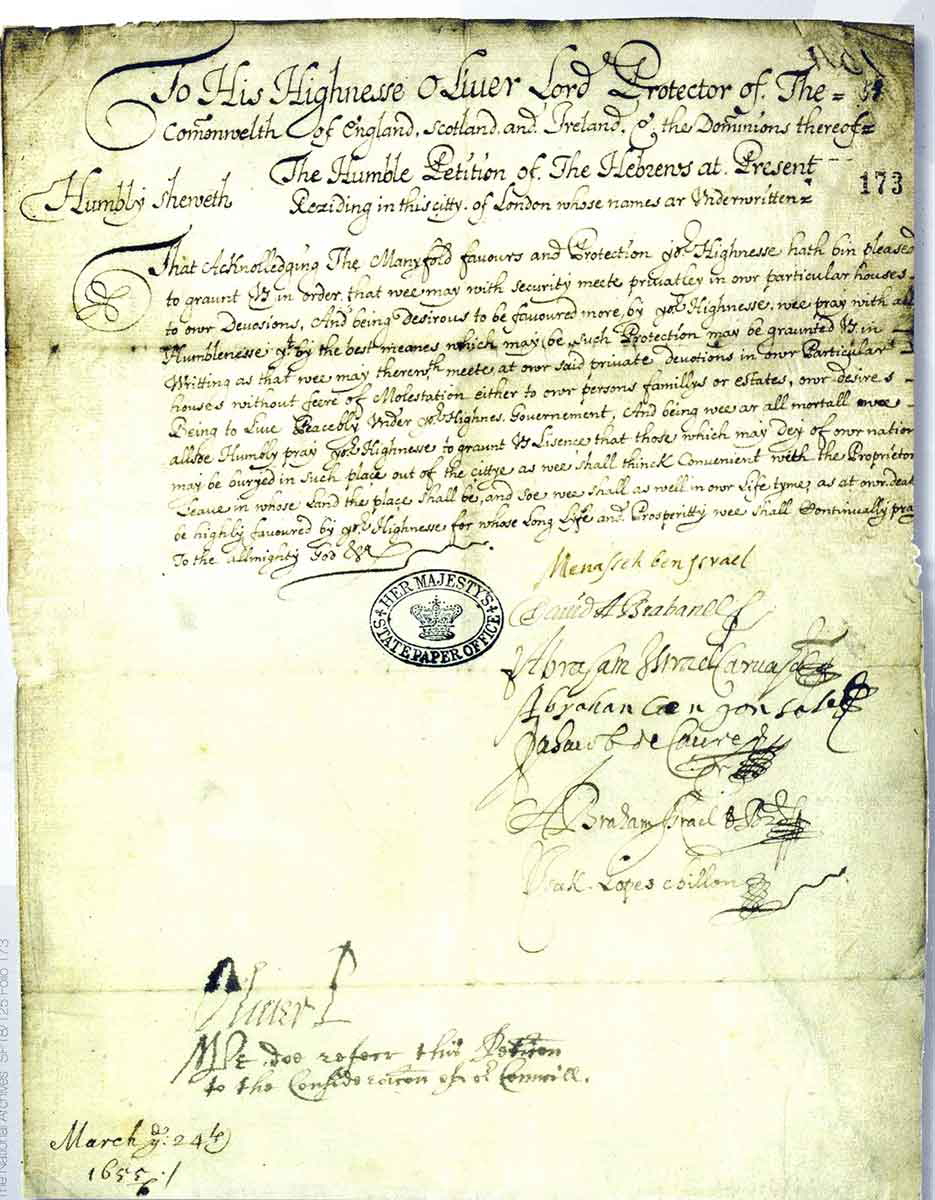 To His Highnesse Oliver Lord Protector of The=
Comonwelth of England, Scotland, and Ireland, & the Dominions thereof=
The Humble Petition of The Hebrews at Present
Reziding in this citty of London whose names ar Underwritten=
Humbly sheweth
173
That Acknolledging The Manyfold favours and Protection yor Highnesse hath bin pleased
to graunt Us in order that wee may with security meete privatley in owr particular houses
to owr Devosions, And being desirous to be favoured more by yor Highnesse, wee pray with all
Humblenesse yt by the best meanes which may be such Protection may be graunted Us in
Writting as that wee may therewth meete at owr said private devotions in owr Particular
houses without feere of Molestation either to owr persons famillys or estates, owr desires
Being to Live Peacebly Under yor Highnes Governement, And being wee ar all mortall wee
allsoe Humbly pray yor Highnesse to graunt Us Lisence that those which may dey of owr nation
may be buryed in such place out of the cittye as wee shall thinck Convenient with the Proprietors
Leave in whose Land the place shall be, and soe wee shall as well in owr Life tyme, as at owr death
be highly favoured by yor Highnesse for whose Long Life and Prosperitty wee shall Continually pray
To the allmighty God &ca
Menasseh ben Israel
HER MAJESTY'S STATE PAPER OFFICE
David Abrabanel
Abraham Israel Carvajal
Abraham Coen gonsales
Jahacob de Caceres
Abraham Israel
Isak Lopes Chillon
Oliver P
Wee doe referr this Peticon
to the Consideracon of or Councill.
March ye: 24th
1655/6
The National Archives SP18/125 Folio 173